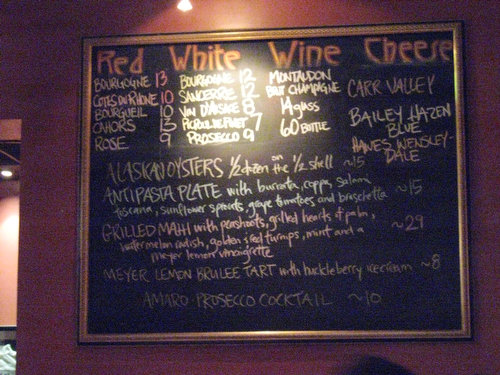 Red White Wine Cheese
BOURGOGNE 13 BOURGOGNE 12 MONTAUDON
COTES DU RHONE 10 SANCERRE 12 BRUT CHAMPAGNE CARR VALLEY
BOURGUEIL 10 VIN D'ALSACE 8 14 glass BAILEY HAZEN
CAHORS 13 PICPOUL DE PINET 7 60 BOTTLE BLUE
ROSE 9 PROSECCO 9 HAWES WENSLEY
DALE
ALASKAN OYSTERS ½ dozen on the ½ shell ~15
ANTIPASTA PLATE with burrata, coppa, salami
toscana, sunflower sprouts, grape tomatoes and bruschetta ~15
GRILLED MAHI with peashoots, grilled hearts of palm,
watermelon radish, golden & red turnips, mint and a ~27
meyer lemon vinaigrette
MEYER LEMON BRULEE TART with huckleberry icecream ~8
AMARO PROSECCO COCKTAIL ~10